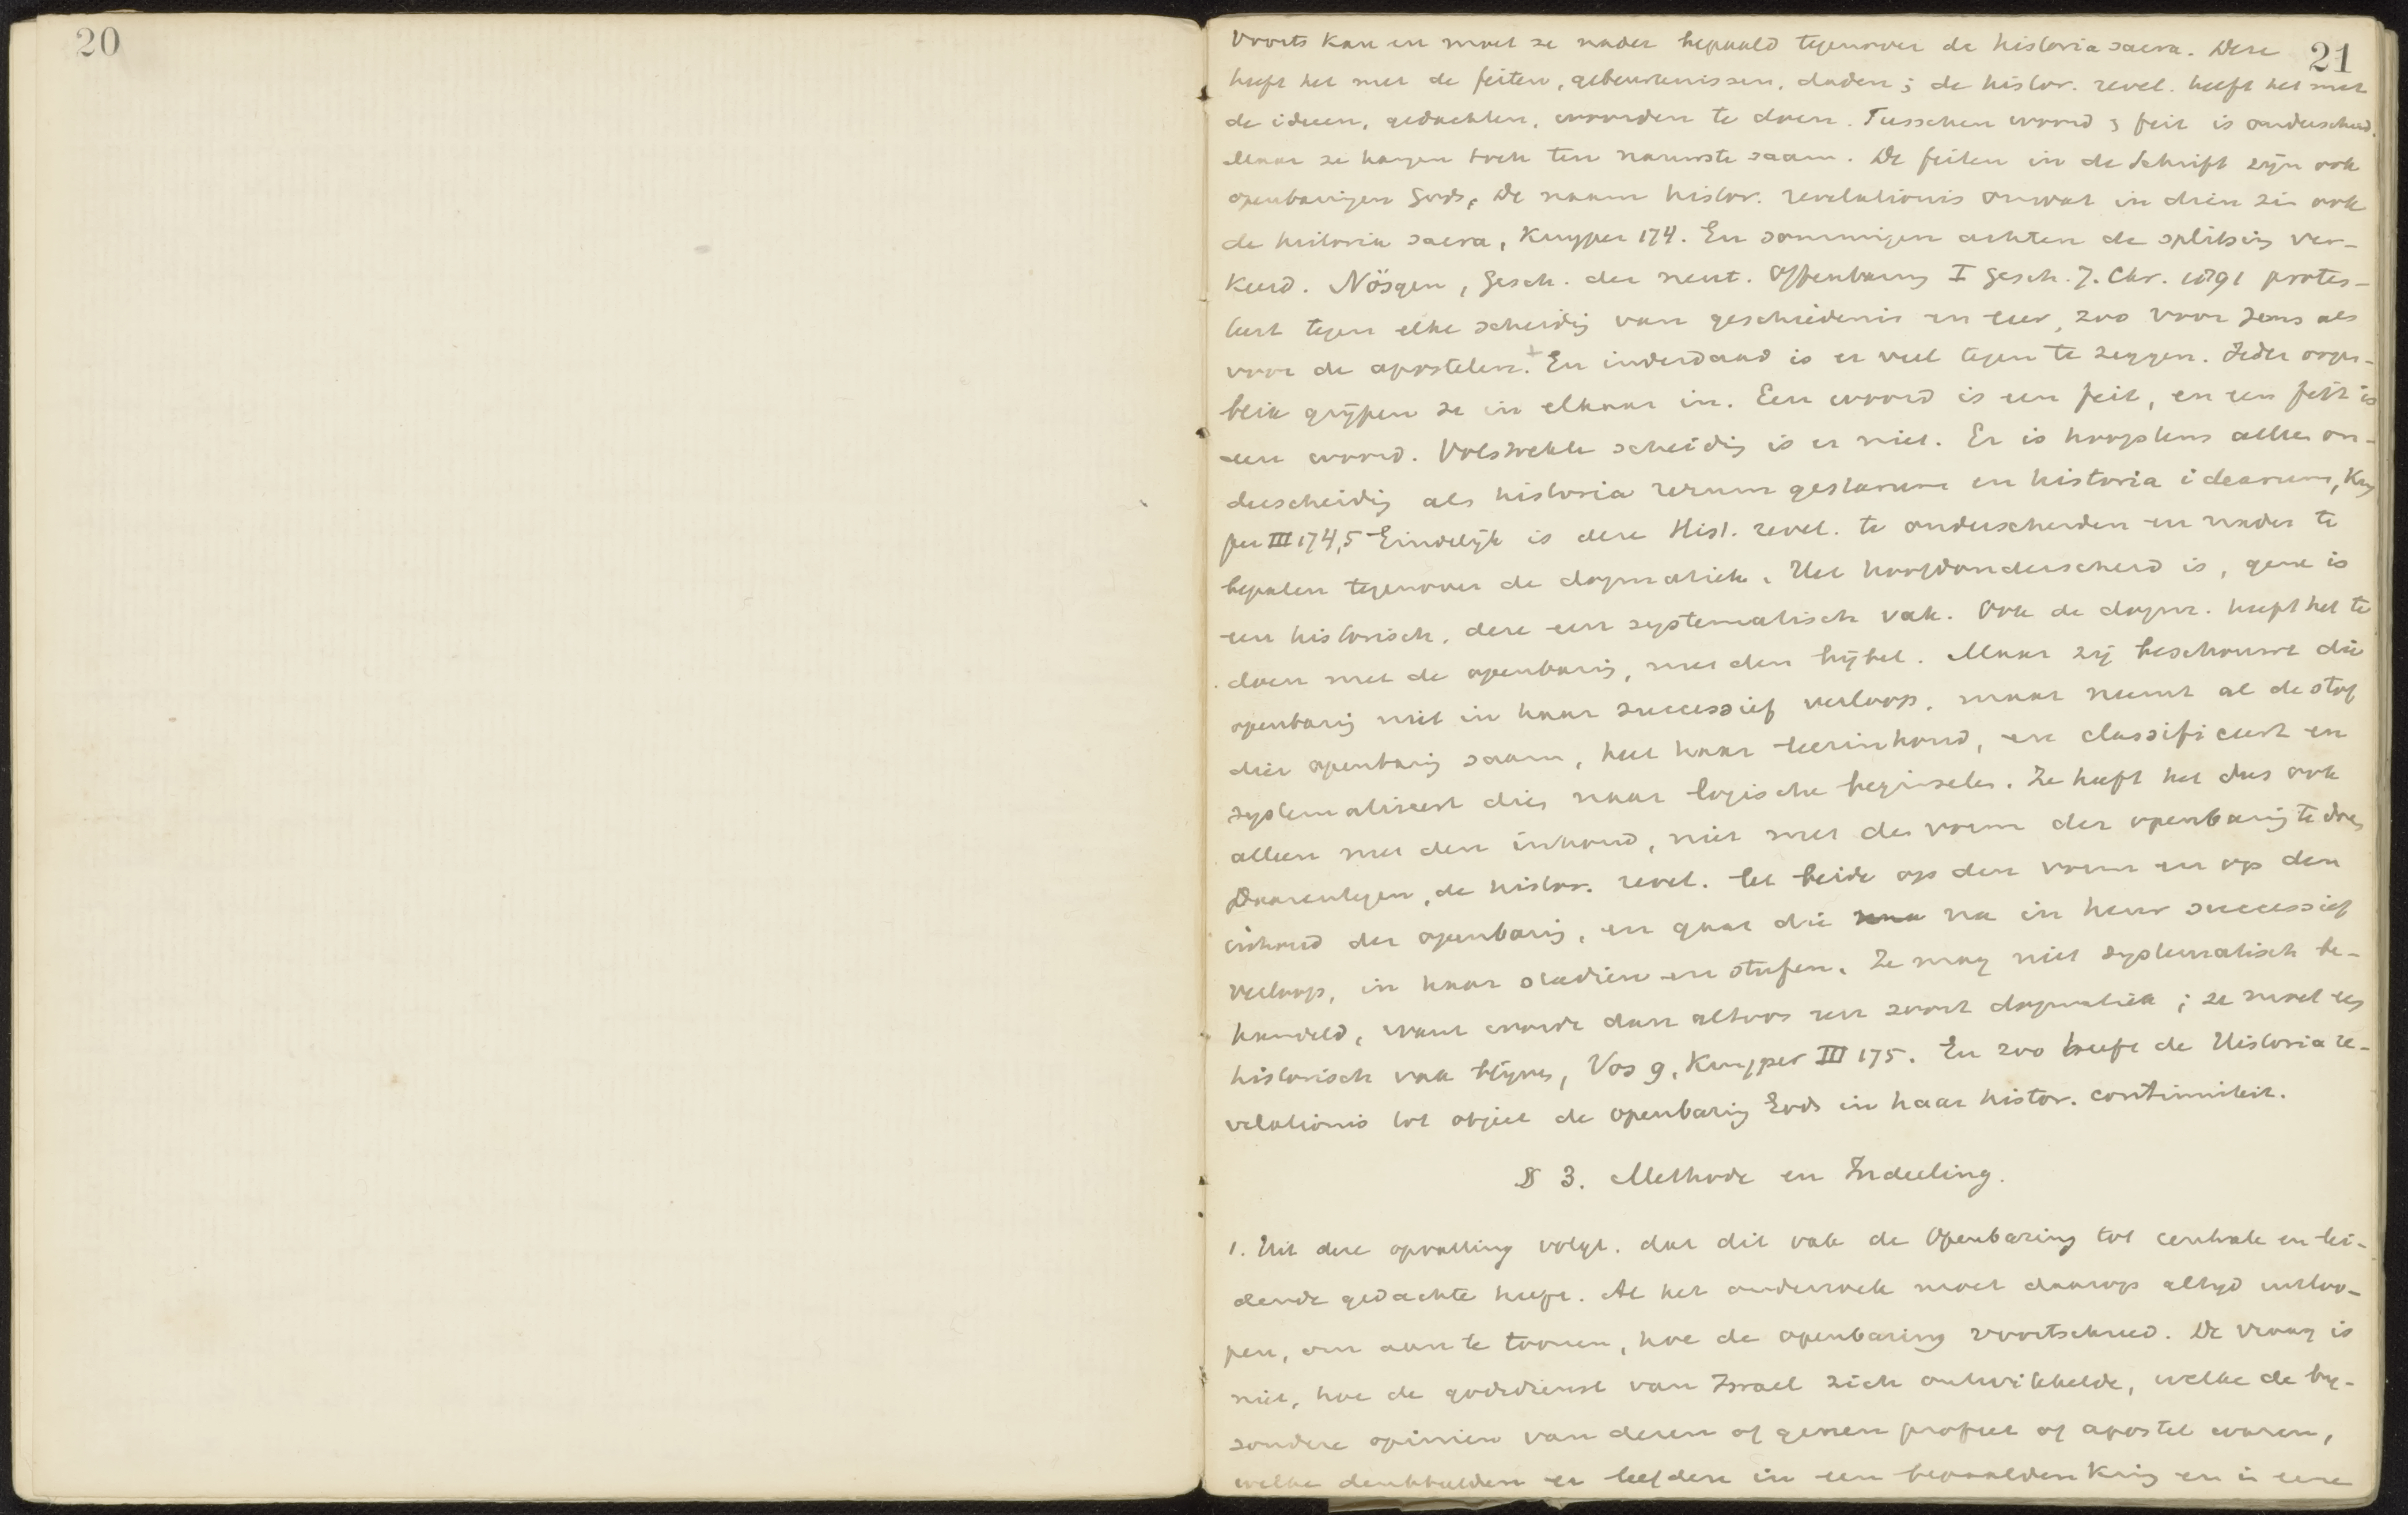 20
21
Voorts kan en moet ze nader bepaald tegenover de historia sacra. Deze
heeft het met de feiten, gebeurtenissen, daden; de histor. revel. heeft het met
de ideen, gedachten, woorden te doen. Tusschen woord & feit is onderscheid.
Maar ze hangen toch ten nauwste saam. De feiten in de Schrift zijn ook
openbaringen Gods. De naam histor. revelationis omvat in dien zin ook
de historia sacra, Kuyper 174. En sommigen achten de splitsing ver-
keerd. Nösgen, Gesch. der neut. Offenbarung I Gesch. J. Chr. 1891 protes-
teert tegen elke scheidig van geschiedenis en leer, zoo voor Jezus als
voor de apostelen. + En inderdaad is er veel tegen te zeggen. Ieder oogen-
blik grijpen ze in elkaar in. Een woord is een feit, en een feit is
een woord. Volstrekte scheidig is er niet. Er is hoogstens alleen on-
derscheidig als historia rerum gestarum en historia idearum, Kuy
per III 174,5 Eindelijk is deze Hist. revel. te onderscheiden en nader te
bepalen tegenover de dogmatiek. Het hoofdonderscheid is, gene is
een historisch, deze een systematisch vak. Ook de dogm. heeft het te
doen met de openbarig, met den bijbel. Maar zij beschouwt die
openbarig niet in haar successief verloop, maar neemt al de stof
dier openbarig saam, heel haar leerinhoud, en classificeert en
systematiseert dien naar logische beginselen. Ze heeft het dus ook
alleen met den inhoud, niet met den vorm der openbarig te doen
Daarentegen, de histor. revel. let beide op den vorm en op den
inhoud der openbarig, en gaat die na in haar successief
verloop, in haar stadiën en stufen. Ze mag niet systematisch be-
handeld, want worde dan altoos een soort dogmatiek; ze moet een
historisch vak blijven, Vos 9, Kuyper III 175. En zoo heeft de Historia re-
velationis tot object de openbarig Gods in haar histor. continuiteit.
§ 3. Methode en Indeeling.
1. Uit deze opvatting volgt, dat dit vak de Openbaring tot centrale en lei-
dende gedachte heeft. Al het onderzoek moet daarop altijd uitloo-
pen, om aan te toonen, hoe de openbaring voortschreed. De vraag is
niet, hoe de godsdienst van Israel zich ontwikkelde, welke de bij-
zondere opiniën van dezen of genen profeet of apostel waren,
welke denkbeelden er leefden in een bepaalden kring en in eene